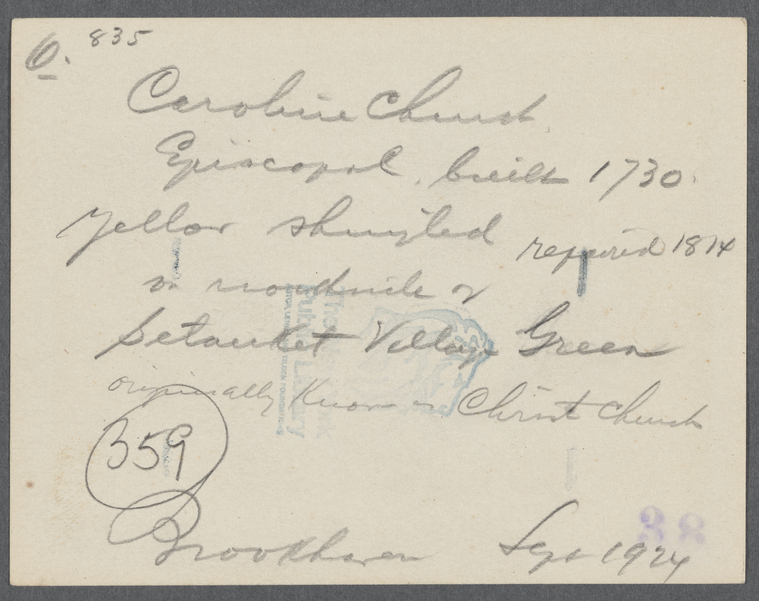 O. 835
Caroline Church
Episcopal, built 1730.
yellow shingled repaired 1814
on roadside of
Setauket Village Green
originally Known as Christ Church
359
Brookhaven Sept 1924
38